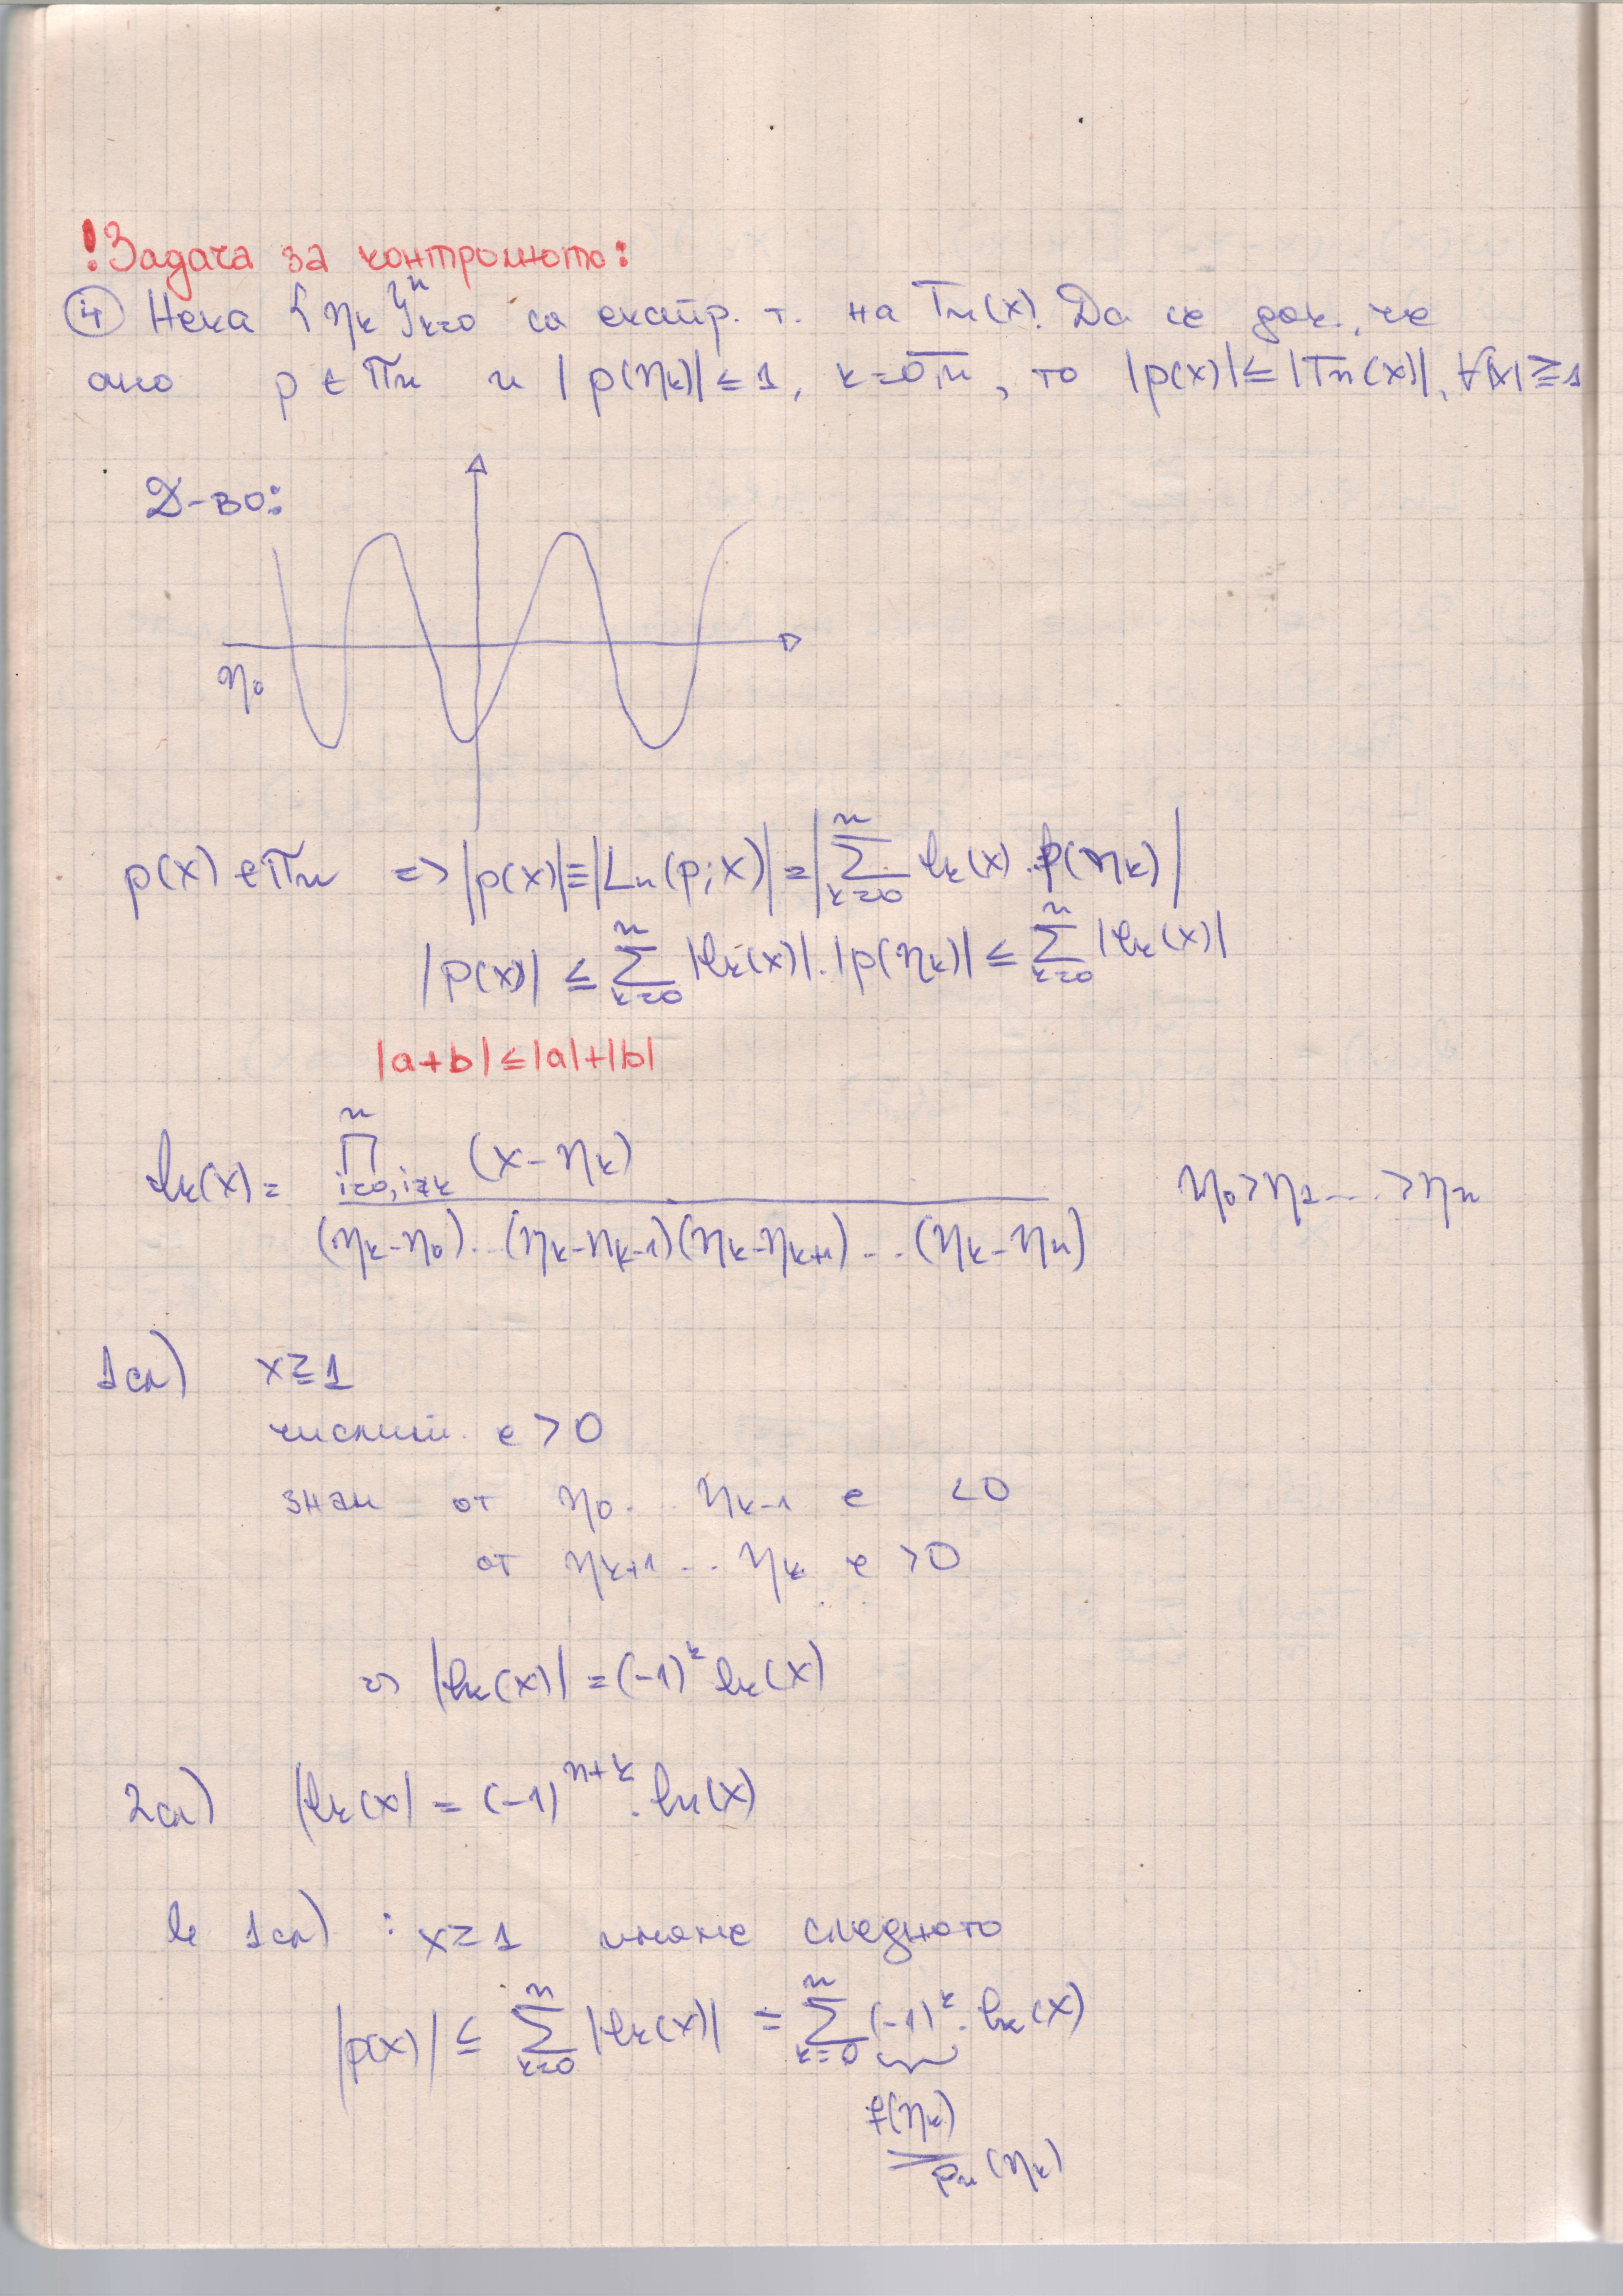 !Задача за контролното:
④ Нека {ηk}ⁿk=0 са екстр. т. на Tn(x). Да се док., че
ако p ∈ πn и |p(ηk)| ≤ 1, k=0,n, то |p(x)| ≤ |Tn(x)|, ∀|x| ≥ 1
Д-во:
η0
p(x) ∈ πn => |p(x)| ≡ |Ln(p;x)| = |∑ⁿk=0 lk(x).p(ηk)|
|p(x)| ≤ ∑ⁿk=0 |lk(x)|.|p(ηk)| ≤ ∑ⁿk=0 |lk(x)|
|a+b| ≤ |a|+|b|
lk(x) = ∏ⁿi=0,i≠k (x-ηk) / (ηk-η0)...(ηk-ηk-1)(ηk-ηk+1)...(ηk-ηn) η0>η1...>ηn
1сл) x ≥ 1
числит. е > 0
знам от η0... ηk-1 е < 0
от ηk+1 ... ηk е > 0
=> |lk(x)| = (-1)^k lk(x)
2сл) |lk(x)| = (-1)^(n+k) . lk(x)
в 1сл) : x ≥ 1 имаме следното
|p(x)| ≤ ∑ⁿk=0 |lk(x)| = ∑ⁿk=0 (-1)^k . lk(x)
f(ηk)
pn(ηk)